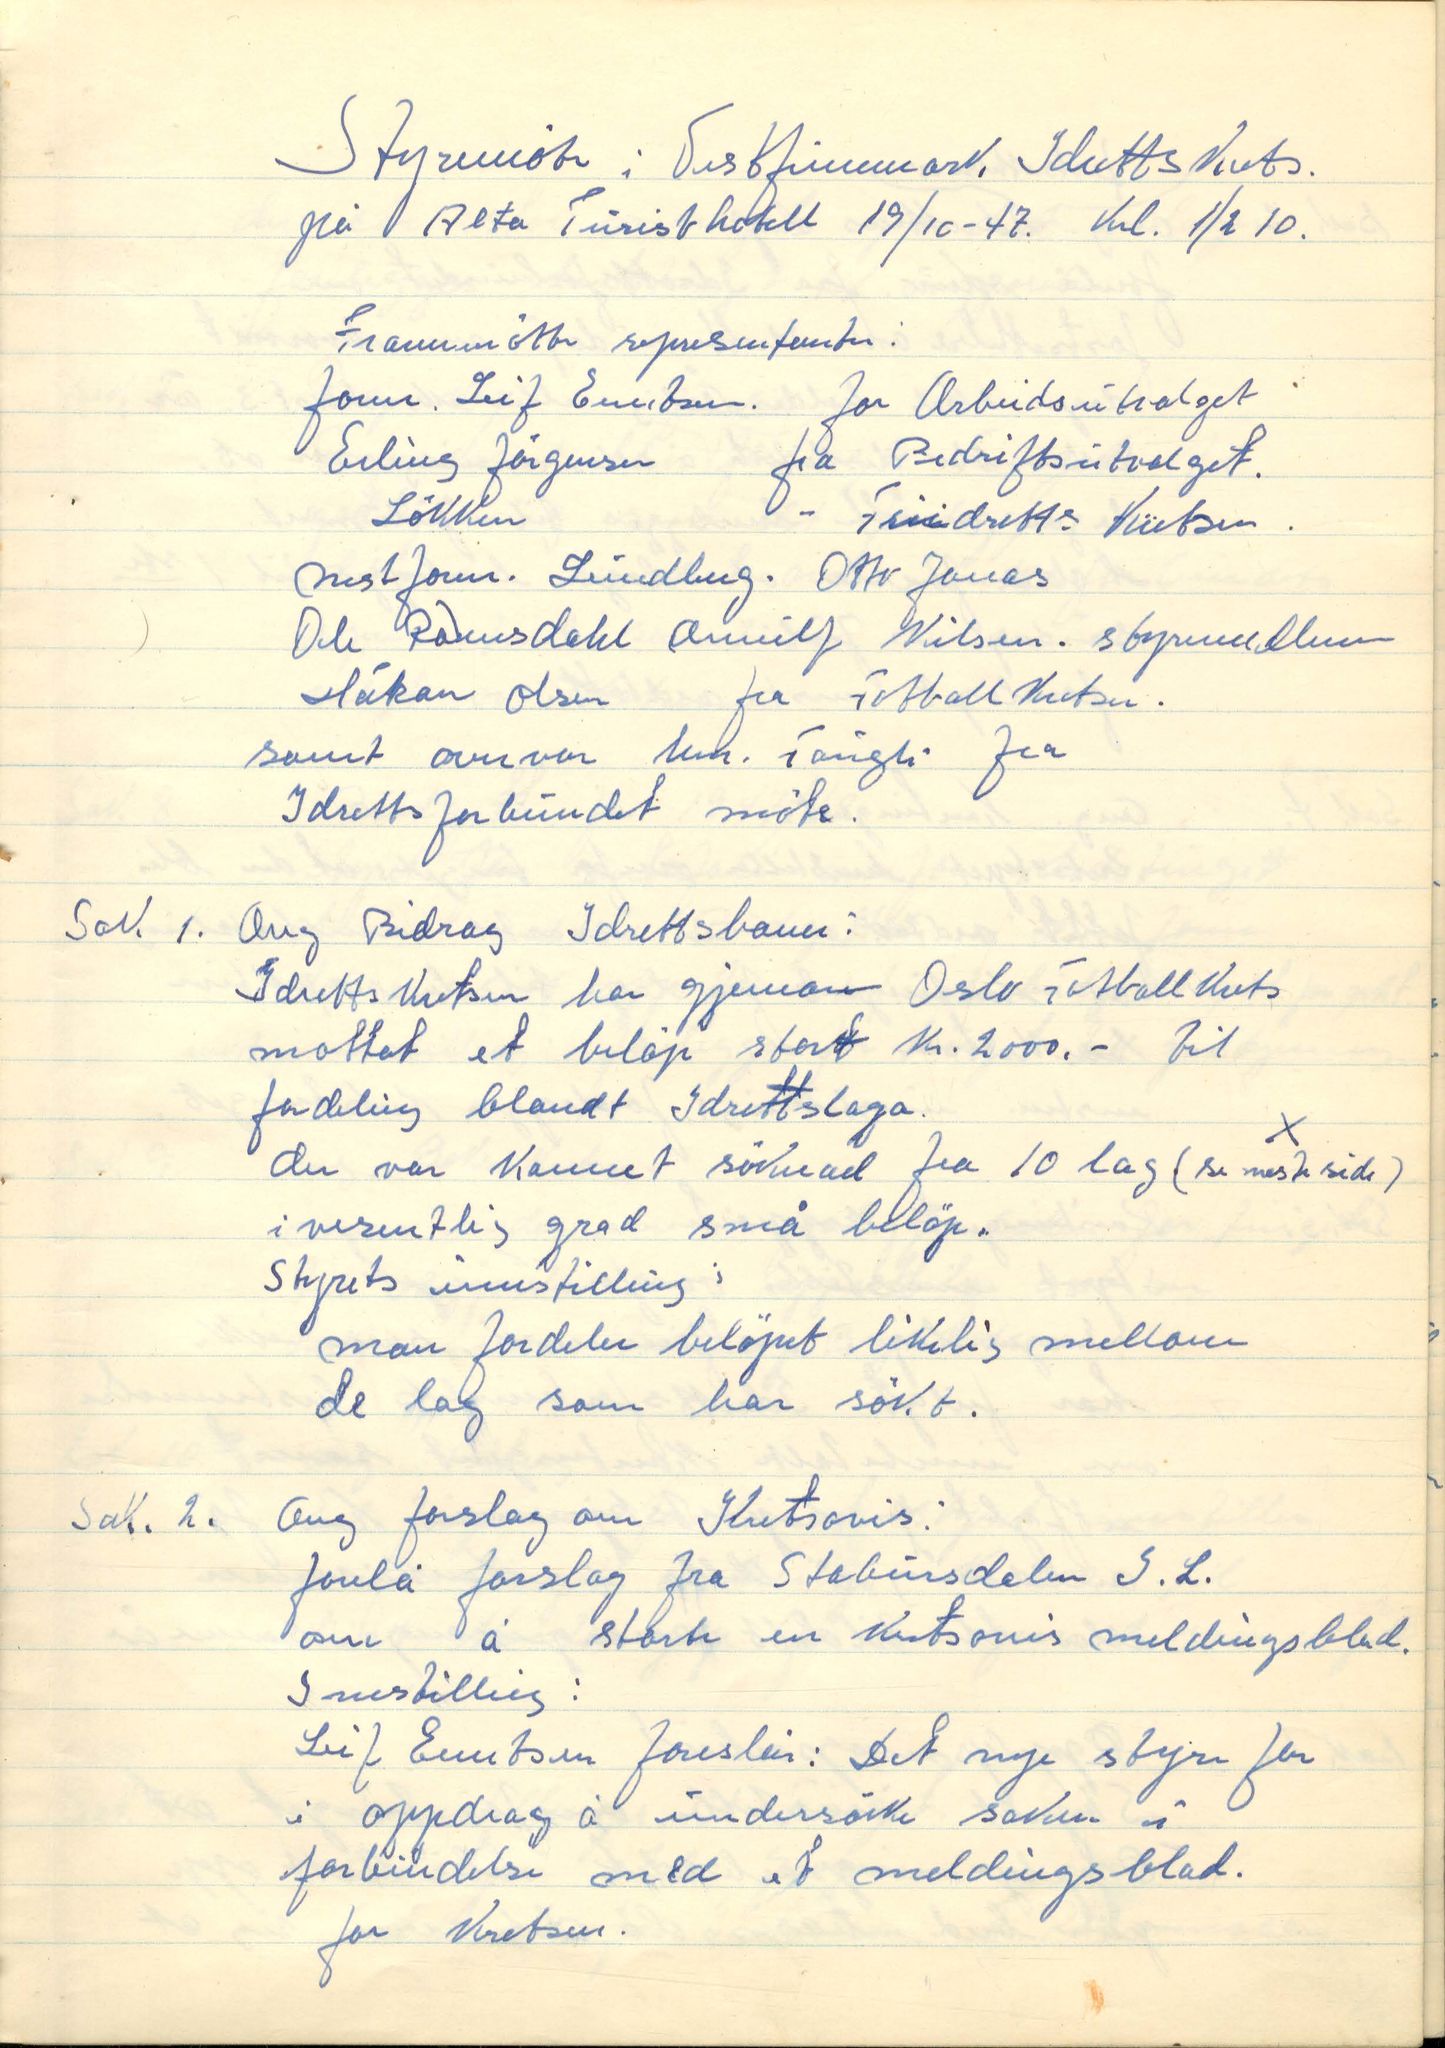 Styremöte i Vestfinnmark Idrettskrets.
på Alta Turisthotell 19/10-47. Kl. 1/2 10.
Frammötte representanter:
form. Leif Evertsen. for Arbeidsutvalget
Erling Jörgensen fra Bedriftsutvalget.
Lökken - Friidretts Kretsen.
nestform. Lundberg. Otto Jonas
Ole Ramsdahl Arnulf Nilsen. styremedlem
Håkan Olsen fra Fotballkretsen.
samt overvar hr. Tangli fra
Idrettsforbundet möte.
Sak 1. Ang Bidrag Idrettsbaner:
Idrettskretsen har gjenom Oslo Fotballkrets
mottat et belöp stort kr. 2000.- til
fordeling blandt Idrettslaga.
der var kommet söknad fra 10 lag (se neste side)
X
i vesentlig grad små belöp.
Styrets innstilling:
man fordeler belöpet likelig mellom
de lag som har sökt.
Sak. 2. Ang forslag om Kretsavis:
forelå forslag fra Stabursdalen I.L.
om å starte en kretsavis meldingsblad.
Innstilling:
Leif Evertsen foreslår: Det nye styre får
i oppdrag å undersöke saken i
forbindelse med et meldingsblad.
for kretsen.